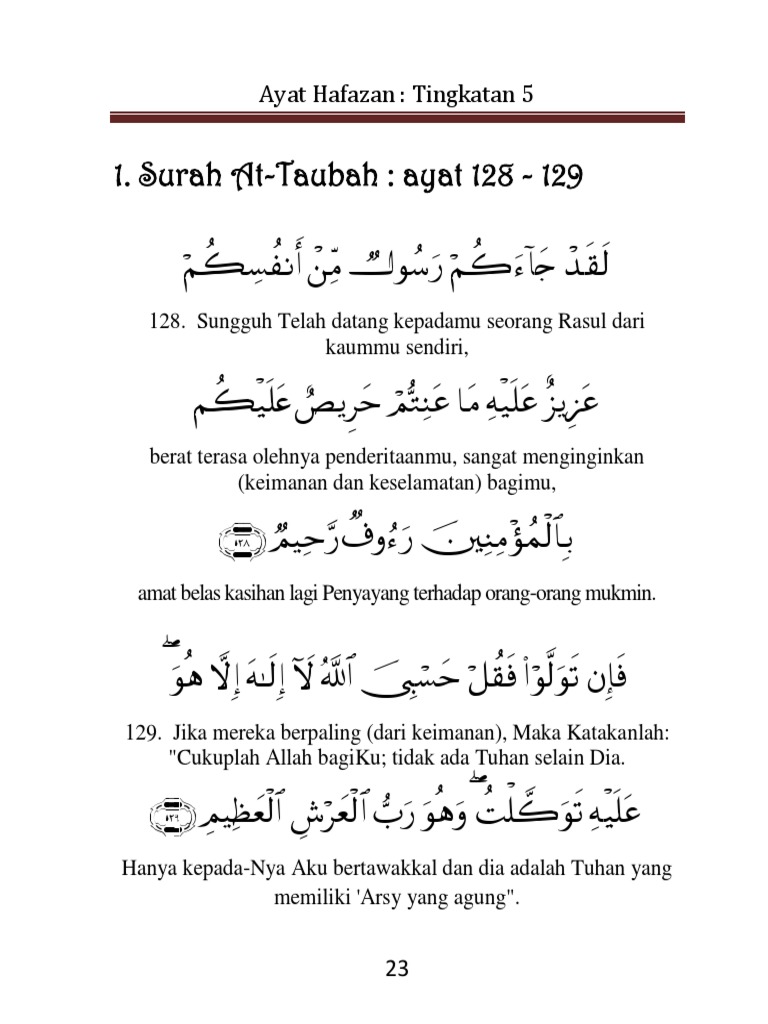 Ayat Hafazan : Tingkatan 5
1. Surah At-Taubah : ayat 128 - 129
لَقَدۡ جَآءَكُمۡ رَسُولٞ مِّنۡ أَنفُسِكُمۡ
128. Sungguh Telah datang kepadamu seorang Rasul dari
kaummu sendiri,
عَزِيزٌ عَلَيۡهِ مَا عَنِتُّمۡ حَرِيصٌ عَلَيۡكُم
berat terasa olehnya penderitaanmu, sangat menginginkan
(keimanan dan keselamatan) bagimu,
بِٱلۡمُؤۡمِنِينَ رَءُوفٞ رَّحِيمٞ ١٢٨
amat belas kasihan lagi Penyayang terhadap orang-orang mukmin.
فَإِن تَوَلَّوۡاْ فَقُلۡ حَسۡبِيَ ٱللَّهُ لَآ إِلَٰهَ إِلَّا هُوَۖ
129. Jika mereka berpaling (dari keimanan), Maka Katakanlah:
"Cukuplah Allah bagiKu; tidak ada Tuhan selain Dia.
عَلَيۡهِ تَوَكَّلۡتُۖ وَهُوَ رَبُّ ٱلۡعَرۡشِ ٱلۡعَظِيمِ ١٢٩
Hanya kepada-Nya Aku bertawakkal dan dia adalah Tuhan yang
memiliki 'Arsy yang agung".
23